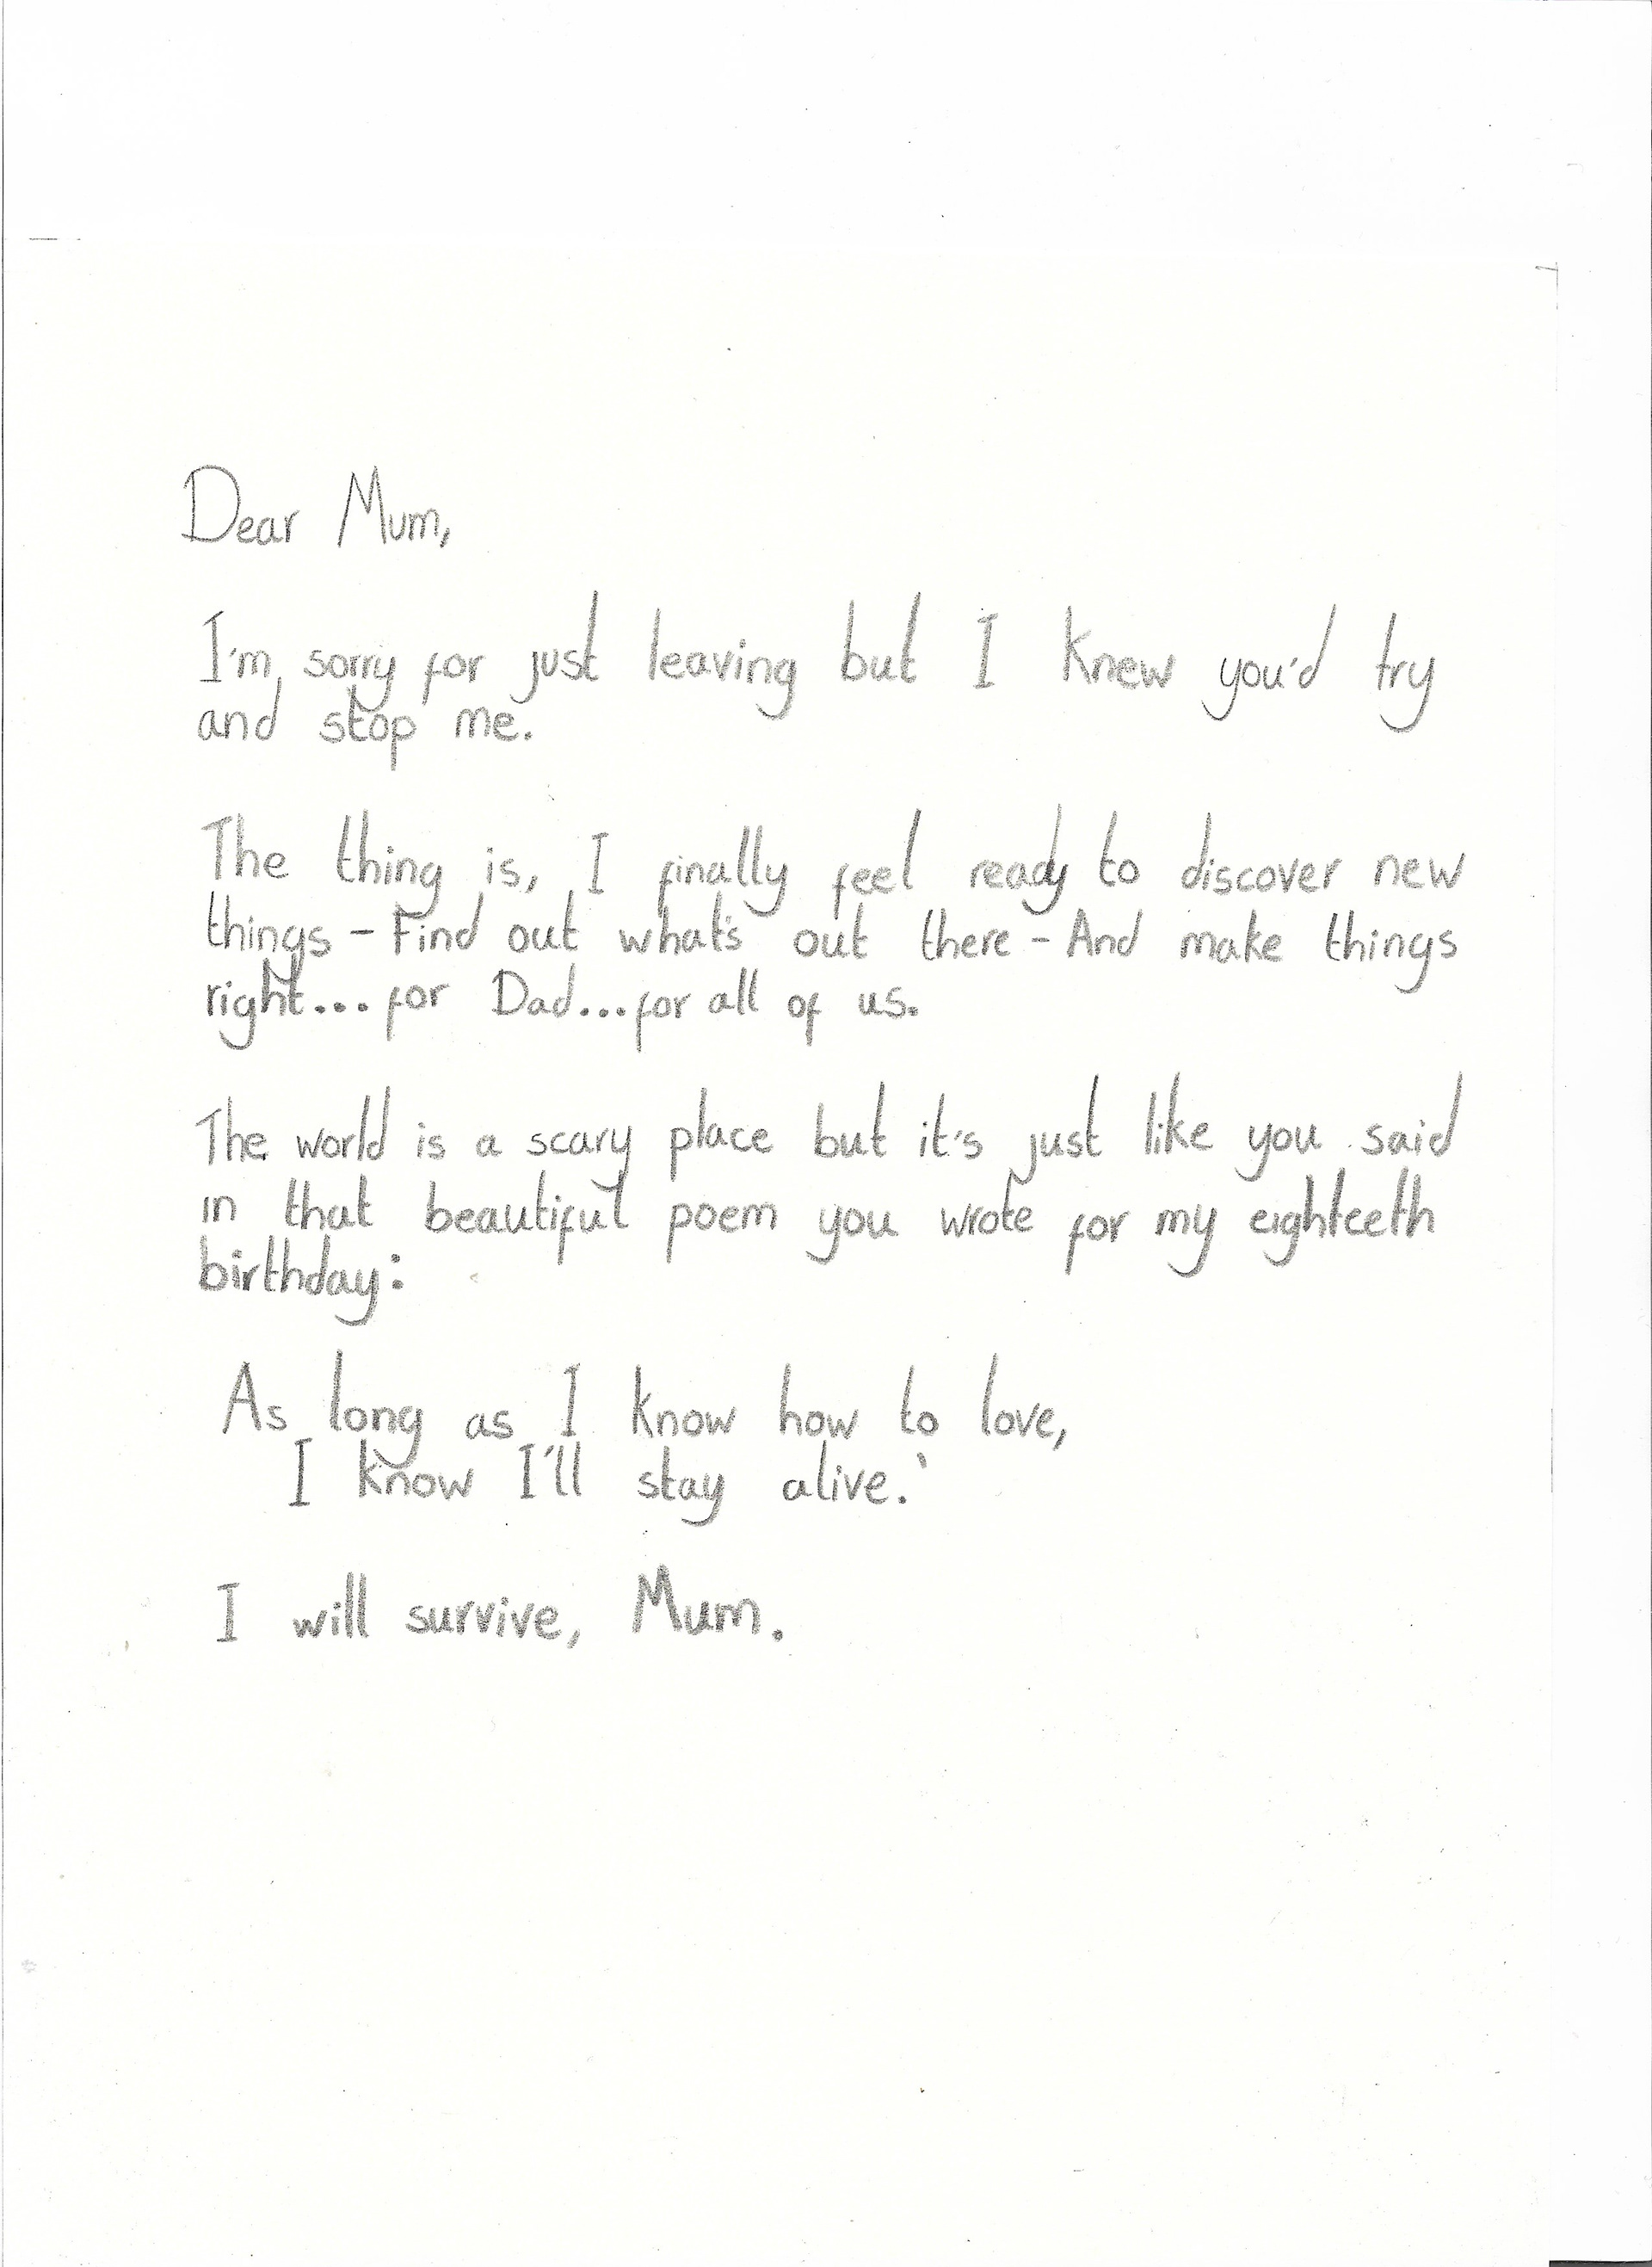 Dear Mum,
I'm sorry for just leaving but I knew you'd try
and stop me.
The thing is, I finally feel ready to discover new
things - Find out what's out there - And make things
right... for Dad...for all of us.
The world is a scary place but it's just like you said
in that beautiful poem you wrote for my eighteeth
birthday:
As long as I know how to love,
I know I'll stay alive.'
I will survive, Mum.